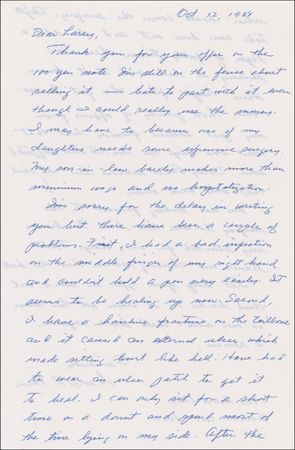 Oct. 12, 1989
Dear Larry,
Thank you for your offer on the
100 yen note. I'm still on the fence about
selling it — hate to part with it even
though I could really use the money.
I may have to because one of my
daughters needs some expensive surgery.
My son in law barely makes more than
minimum wage and no hospitalization.
I'm sorry for the delay in writing
you but there have been a couple of
problems. First, I had a bad infection
on the middle finger of my right hand
and couldn't hold a pen very easily. It
seems to be healing up now. Second,
I have a hairline fracture on the tailbone
and it caused an external ulcer which
made sitting hurt like hell. Have had
to wear an ulcer patch to get it
to heal. I can only sit for a short
time on a donut and spend most of
the time lying on my side. After the